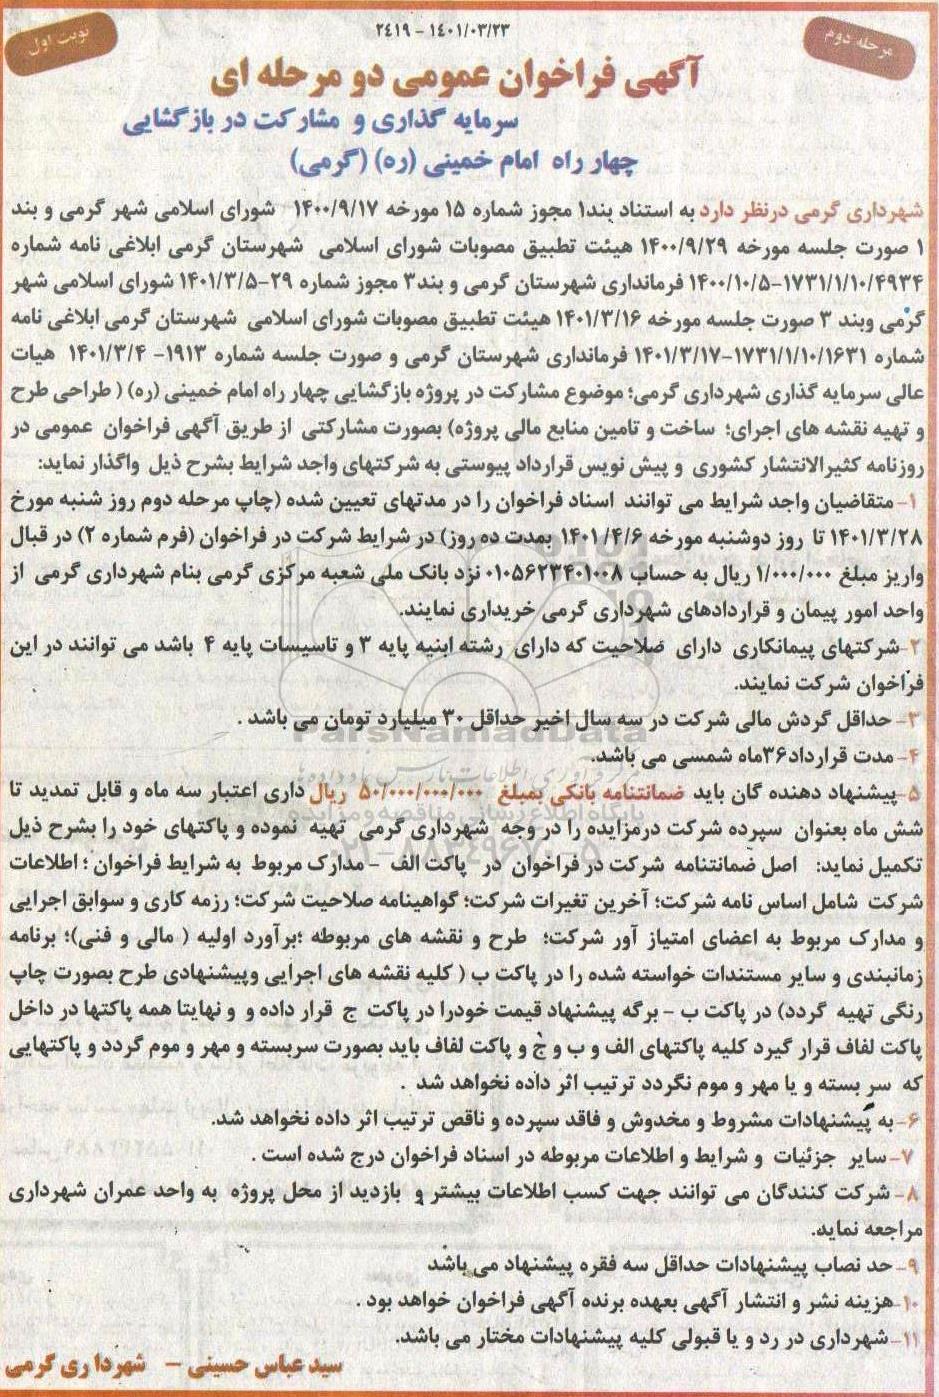 مرحله دوم
نوبت اول
۱۴۰۱/۰۳/۲۳ - ۲۴۱۹
آگهی فراخوان عمومی دو مرحله ای
سرمایه گذاری و مشارکت در بازگشایی
چهار راه امام خمینی (ره) (گرمی)
شهرداری گرمی درنظر دارد به استناد بند۱ مجوز شماره ۱۵ مورخه ۱۴۰۰/۹/۱۷ شورای اسلامی شهر گرمی و بند
۱ صورت جلسه مورخه ۱۴۰۰/۹/۲۹ هیئت تطبیق مصوبات شورای اسلامی شهرستان گرمی ابلاغی نامه شماره
۱۴۰۰/۱۰/۵-۱۷۳۱/۱/۱۰/۴۹۳۴ فرمانداری شهرستان گرمی و بند۳ مجوز شماره ۲۹-۱۴۰۱/۳/۵ شورای اسلامی شهر
گرمی وبند ۳ صورت جلسه مورخه ۱۴۰۱/۳/۱۶ هیئت تطبیق مصوبات شورای اسلامی شهرستان گرمی ابلاغی نامه
شماره ۱۴۰۱/۳/۱۷-۱۷۳۱/۱/۱۰/۱۶۳۱ فرمانداری شهرستان گرمی و صورت جلسه شماره ۱۹۱۳- ۱۴۰۱/۳/۴ هیات
عالی سرمایه گذاری شهرداری گرمی؛ موضوع مشارکت در پروژه بازگشایی چهار راه امام خمینی (ره) ( طراحی طرح
و تهیه نقشه های اجرای؛ ساخت و تامین منابع مالی پروژه) بصورت مشارکتی از طریق آگهی فراخوان عمومی در
روزنامه کثیرالانتشار کشوری و پیش نویس قرارداد پیوستی به شرکتهای واجد شرایط بشرح ذیل واگذار نماید:
۱- متقاضیان واجد شرایط می توانند اسناد فراخوان را در مدتهای تعیین شده (چاپ مرحله دوم روز شنبه مورخ
۱۴۰۱/۳/۲۸ تا روز دوشنبه مورخه ۱۴۰۱/۴/۶ بمدت ده روز) در شرایط شرکت در فراخوان (فرم شماره ۲) در قبال
واریز مبلغ ۱/۰۰۰/۰۰۰ ریال به حساب ۰۱۰۵۶۲۳۴۰۱۰۰۸ نزد بانک ملی شعبه مرکزی گرمی بنام شهرداری گرمی از
واحد امور پیمان و قراردادهای شهرداری گرمی خریداری نمایند.
۲-شرکتهای پیمانکاری دارای صلاحیت که دارای رشته ابنیه پایه ۳ و تاسیسات پایه ۴ باشد می توانند در این
فراخوان شرکت نمایند.
۳- حداقل گردش مالی شرکت در سه سال اخیر حداقل ۳۰ میلیارد تومان می باشد .
ParsNamadData
۴- مدت قرارداد۳۶ماه شمسی می باشد.
۵-پیشنهاد دهنده گان باید ضمانتنامه بانکی بمبلغ ۵۰/۰۰۰/۰۰۰/۰۰۰ ریال داری اعتبار سه ماه و قابل تمدید تا
شش ماه بعنوان سپرده شرکت درمزایده را در وجه شهرداری گرمی تهیه نموده و پاکتهای خود را بشرح ذیل
تکمیل نماید: اصل ضمانتنامه شرکت در فراخوان در پاکت الف - مدارک مربوط به شرایط فراخوان ؛ اطلاعات
شرکت شامل اساس نامه شرکت؛ آخرین تغیرات شرکت؛ گواهینامه صلاحیت شرکت؛ رزمه کاری و سوابق اجرایی
و مدارک مربوط به اعضای امتیاز آور شرکت؛ طرح و نقشه های مربوطه ؛برآورد اولیه ( مالی و فنی)؛ برنامه
زمانبندی و سایر مستندات خواسته شده را در پاکت ب ( کلیه نقشه های اجرایی وپیشنهادی طرح بصورت چاپ
رنگی تهیه گردد) در پاکت ب - برگه پیشنهاد قیمت خودرا در پاکت ج قرار داده و و نهایتا همه پاکتها در داخل
پاکت لفاف قرار گیرد کلیه پاکتهای الف و ب و ج و پاکت لفاف باید بصورت سربسته و مهر و موم گردد و پاکتهایی
که سر بسته و یا مهر و موم نگردد ترتیب اثر داده نخواهد شد .
۶-به پیشنهادات مشروط و مخدوش و فاقد سپرده و ناقص ترتیب اثر داده نخواهد شد.
۷-سایر جزئیات و شرایط و اطلاعات مربوطه در اسناد فراخوان درج شده است .
۸- شرکت کنندگان می توانند جهت کسب اطلاعات بیشتر و بازدید از محل پروژه به واحد عمران شهرداری
مراجعه نماید.
۹- حد نصاب پیشنهادات حداقل سه فقره پیشنهاد می باشد
۱۰-هزینه نشر و انتشار آگهی بعهده برنده آگهی فراخوان خواهد بود .
۱۱-شهرداری در رد و یا قبولی کلیه پیشنهادات مختار می باشد.
سید عباس حسینی - شهردا ری گرمی